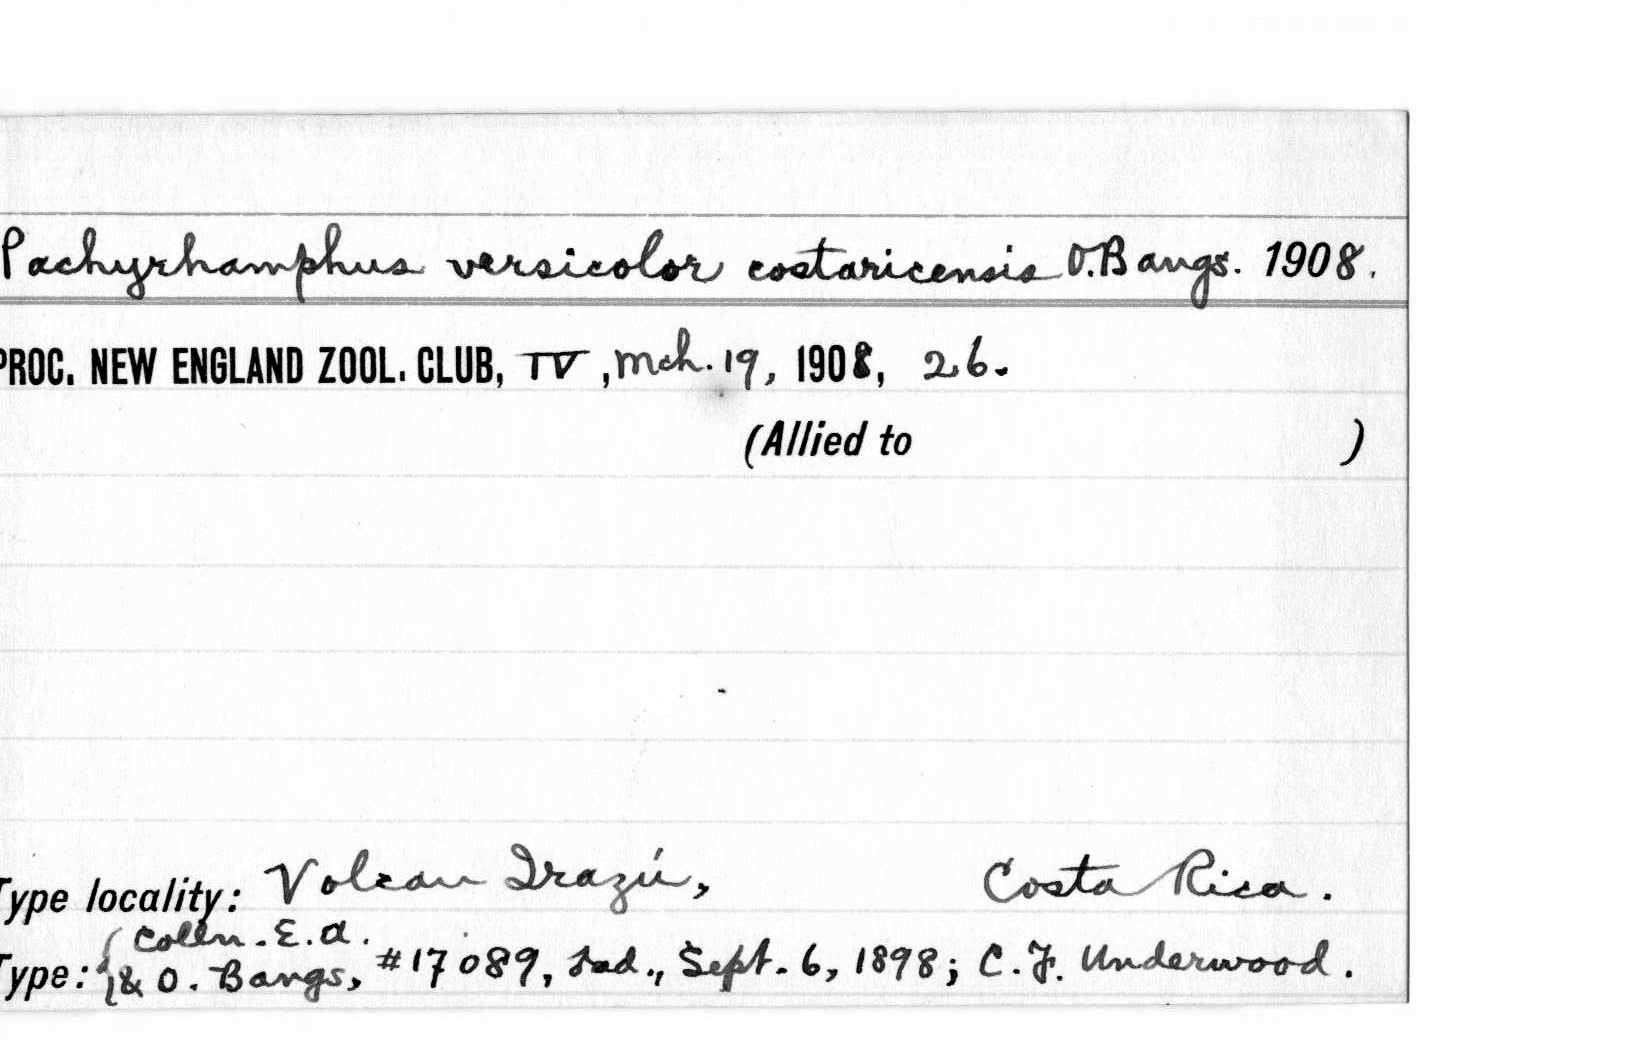 Pachyrhamphus versicolor costaricensis O. Bangs. 1908.
PROC. NEW ENGLAND ZOOL. CLUB, IV, Mch. 19, 1908, 26.
(Allied to )
Type locality: Volcan Irazú, Costa Rica.
Colln. E.A.
Type: & O. Bangs, #17089, ad., Sept. 6, 1898; C.F. Underwood.